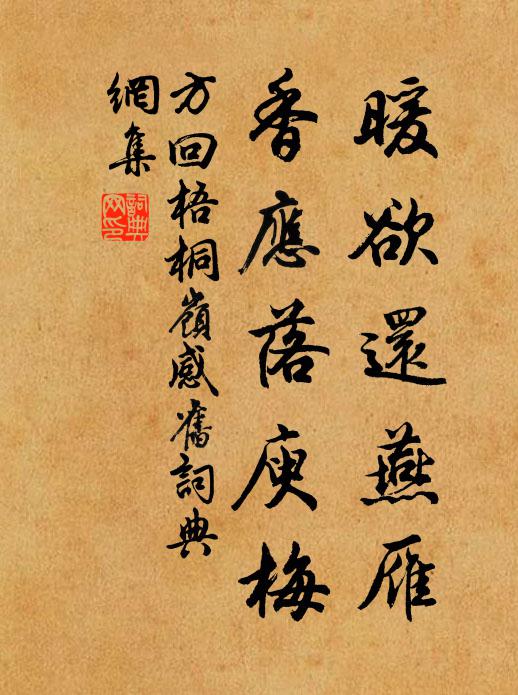 暖欲還燕雁
香應落庾梅
方回梧桐嶺感舊詞典
網集
詞典網印